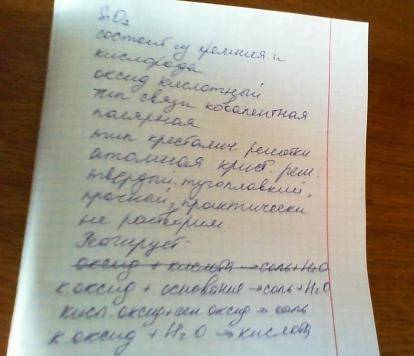 SiO₂
состоит из кремния и
кислорода
оксид кислотный
тип связи ковалентная
полярная
тип кресталич. решотки
атомная крист. реш.
твёрдый, тугоплавкий,
прочный, практически
не растворим
Реагирует:
оксид + кислота → соль + H₂O
к оксид + основания → соль + H₂O
кисл. оксид + осн. оксид → соль
к оксид + H₂O → кислота